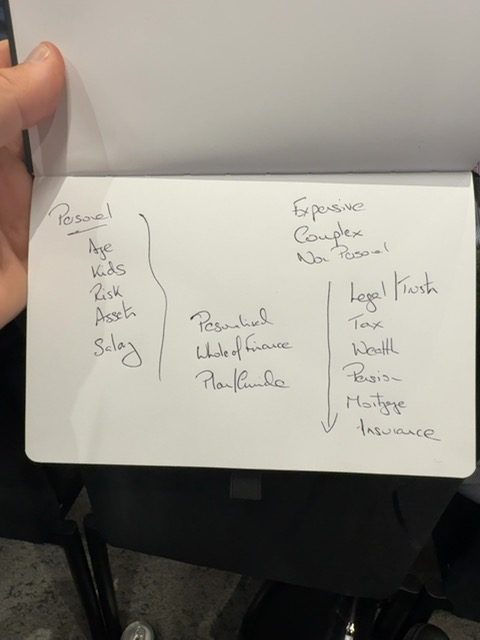 Personal
Age
Kids
Risk
Assets
Salary
Personalised
Whole of Finance
Plan/Guide
Expensive
Complex
Non Personal
Legal/Trusts
Tax
Wealth
Pension
Mortgage
Insurance